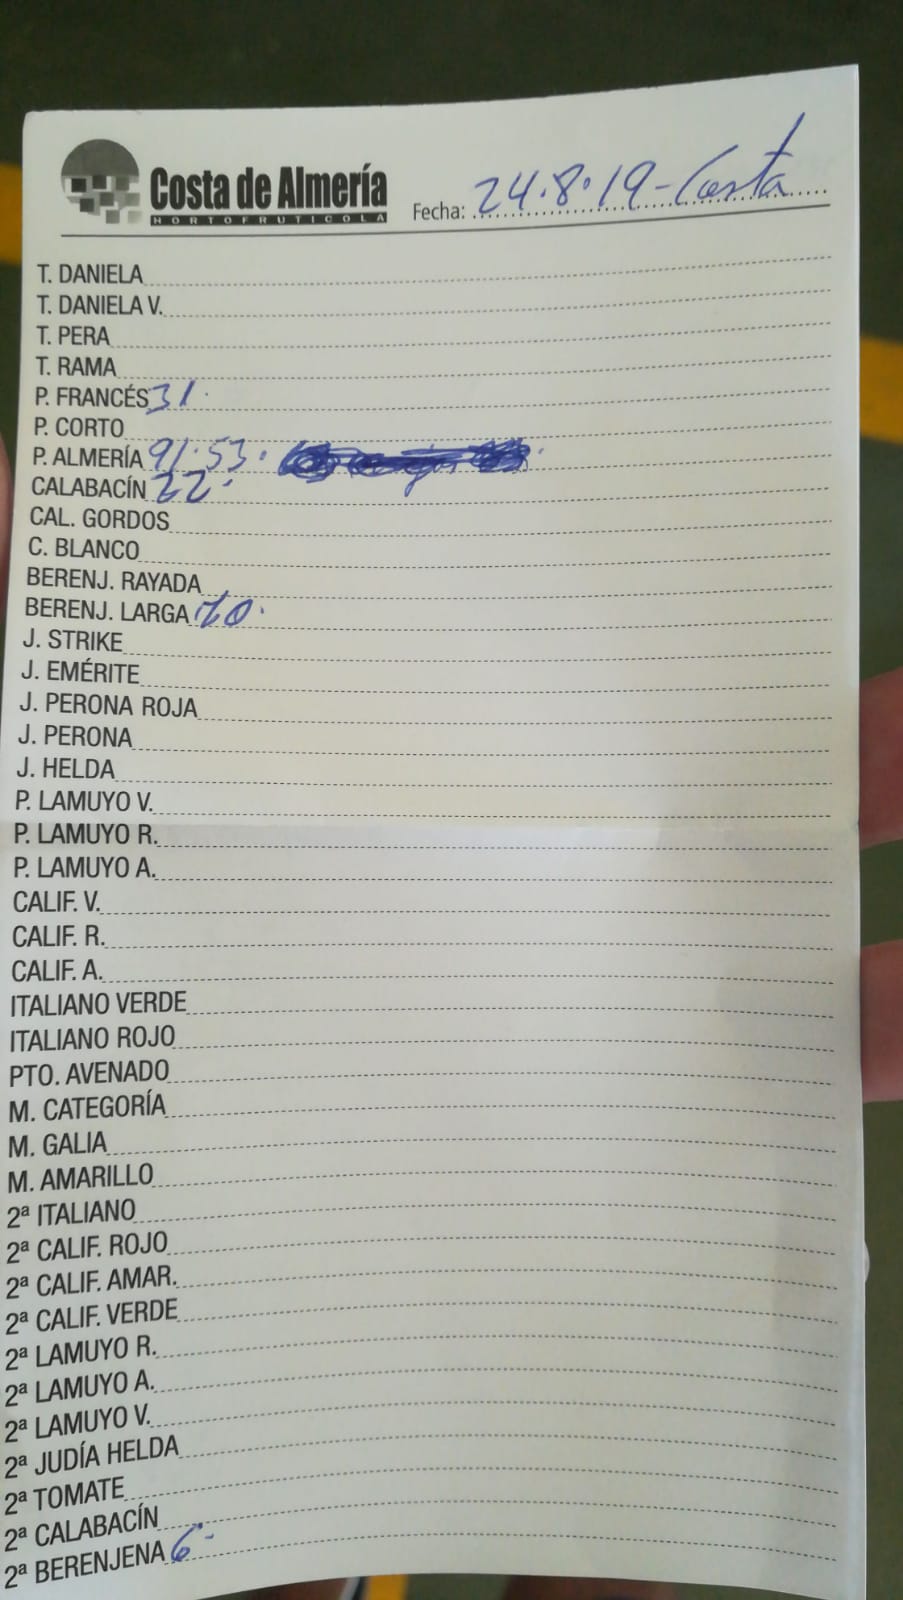 Costa de Almería
HORTOFRUTICOLA
Fecha: 24.8.19-Costa
T. DANIELA
T. DANIELA V.
T. PERA
T. RAMA
P. FRANCÉS 31.
P. CORTO
P. ALMERÍA 91.53.
CALABACÍN 22.
CAL. GORDOS
C. BLANCO
BERENJ. RAYADA
BERENJ. LARGA 70.
J. STRIKE
J. EMÉRITE
J. PERONA ROJA
J. PERONA
J. HELDA
P. LAMUYO V.
P. LAMUYO R.
P. LAMUYO A.
CALIF. V.
CALIF. R.
CALIF. A.
ITALIANO VERDE
ITALIANO ROJO
PTO. AVENADO
M. CATEGORÍA
M. GALIA
M. AMARILLO
2ª ITALIANO
2ª CALIF. ROJO
2ª CALIF. AMAR.
2ª CALIF. VERDE
2ª LAMUYO R.
2ª LAMUYO A.
2ª LAMUYO V.
2ª JUDÍA HELDA
2ª TOMATE
2ª CALABACÍN
2ª BERENJENA 6-